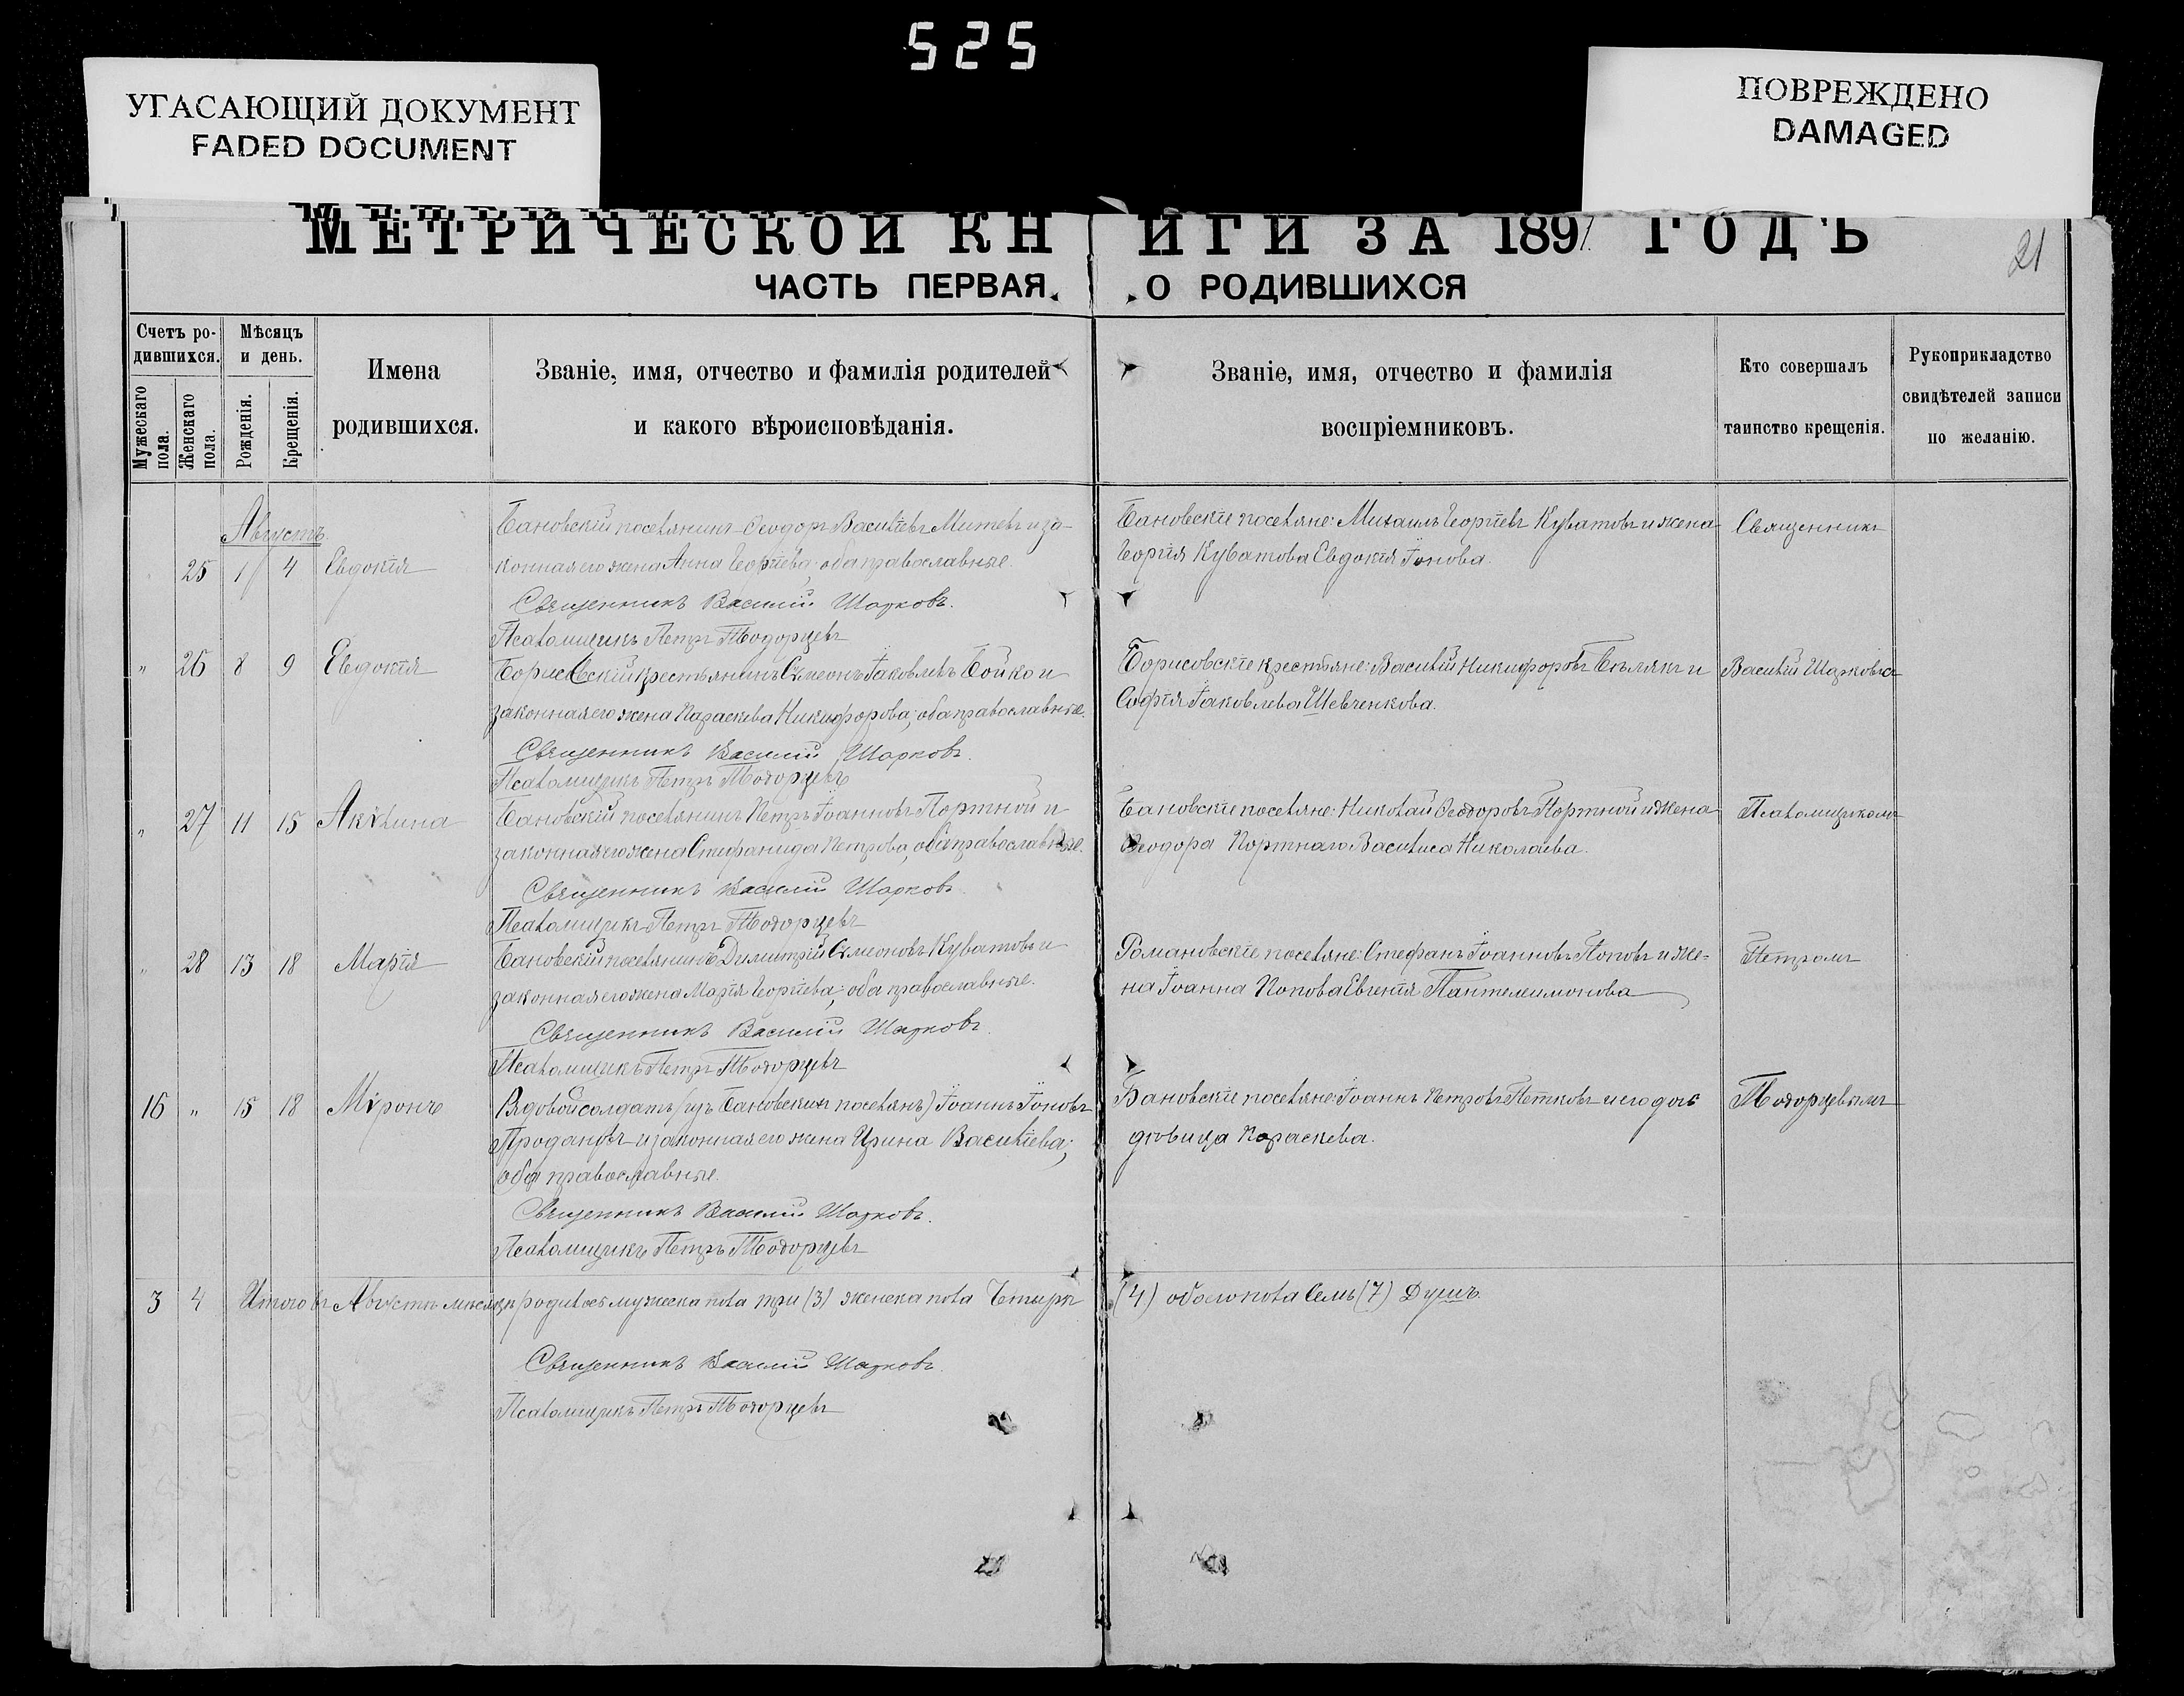 525
УГАСАЮЩИЙ ДОКУМЕНТ
FADED DOCUMENT
ПОВРЕЖДЕНО
DAMAGED
МЕТРИЧЕСКОЙ КНИГИ ЗА 1897 ГОДЪ
21
ЧАСТЬ ПЕРВАЯ, О РОДИВШИХСЯ
Счетъ ро-
дившихся.
Мужескаго
пола.
Женскаго
пола.
Мѣсяцъ
и день.
Рожденія.
Крещенія.
Имена
родившихся.
Званіе, имя, отчество и фамилія родителей
и какого вѣроисповѣданія.
Званіе, имя, отчество и фамилія
воспріемниковъ.
Кто совершалъ
таинство крещенія.
Рукоприкладство
свидѣтелей записи
по желанію.
Августъ
25 1 4 Евдокія
Бановскій поселянинъ Ѳеодоръ Василіевъ Митевъ и за-
конная его жена Анна Георгіева; оба православные.
Священникъ Василій Шарковъ.
Псаломщикъ Петръ Тодорцевъ
Бановскіе поселяне: Михаилъ Георгіевъ Куватовъ и жена
Георгія Куватова Евдокія Іонова.
Священникъ
" 26 8 9 Евдокія
Борисовскій крестьянинъ Симеонъ Іаковлевъ Бойко и
законная его жена Параскева Никифорова; оба православные.
Священникъ Василій Шарковъ.
Псаломщикъ Петръ Тодорцевъ
Борисовскіе крестьяне: Василій Никифоровъ Бѣлякъ и
Софія Іаковлева Шевченкова.
Василій Шарковъ съ
" 27 11 15 Акѵлина
Бановскій поселянинъ Петръ Іоанновъ Портной и
законная его жена Стефанида Петрова; оба православные.
Священникъ Василій Шарковъ
Псаломщикъ Петръ Тодорцевъ
Бановскіе поселяне: Николай Ѳеодоровъ Портной и жена
Ѳеодора Портнаго Василиса Николаева.
Псаломщикомъ
" 28 13 18 Марія
Бановскій поселянинъ Димитрій Симеоновъ Куватовъ и
законная его жена Марія Георгіева; оба православные.
Священникъ Василій Шарковъ.
Псаломщикъ Петръ Тодорцевъ
Романовскіе поселяне: Стефанъ Іоанновъ Поповъ и же-
на Іоанна Попова Евгенія Пантелеимонова
Петромъ
16 " 15 18 Мѵронъ
Рядовой солдатъ (изъ Бановскихъ поселянъ) Іоаннъ Іоновъ
Продановъ и законная его жена Ирина Василіева;
оба православные.
Священникъ Василій Шарковъ.
Псаломщикъ Петръ Тодорцевъ
Бановскіе поселяне: Іоаннъ Петровъ Петковъ и его дочь
дѣвица Параскева.
Тодорцевымъ
3 4 Итого въ Августѣ мѣсяцѣ родилось мужеска пола три (3) женска пола Четыре (4) обоего пола Семь (7) Душъ.
Священникъ Василій Шарковъ.
Псаломщикъ Петръ Тодорцевъ